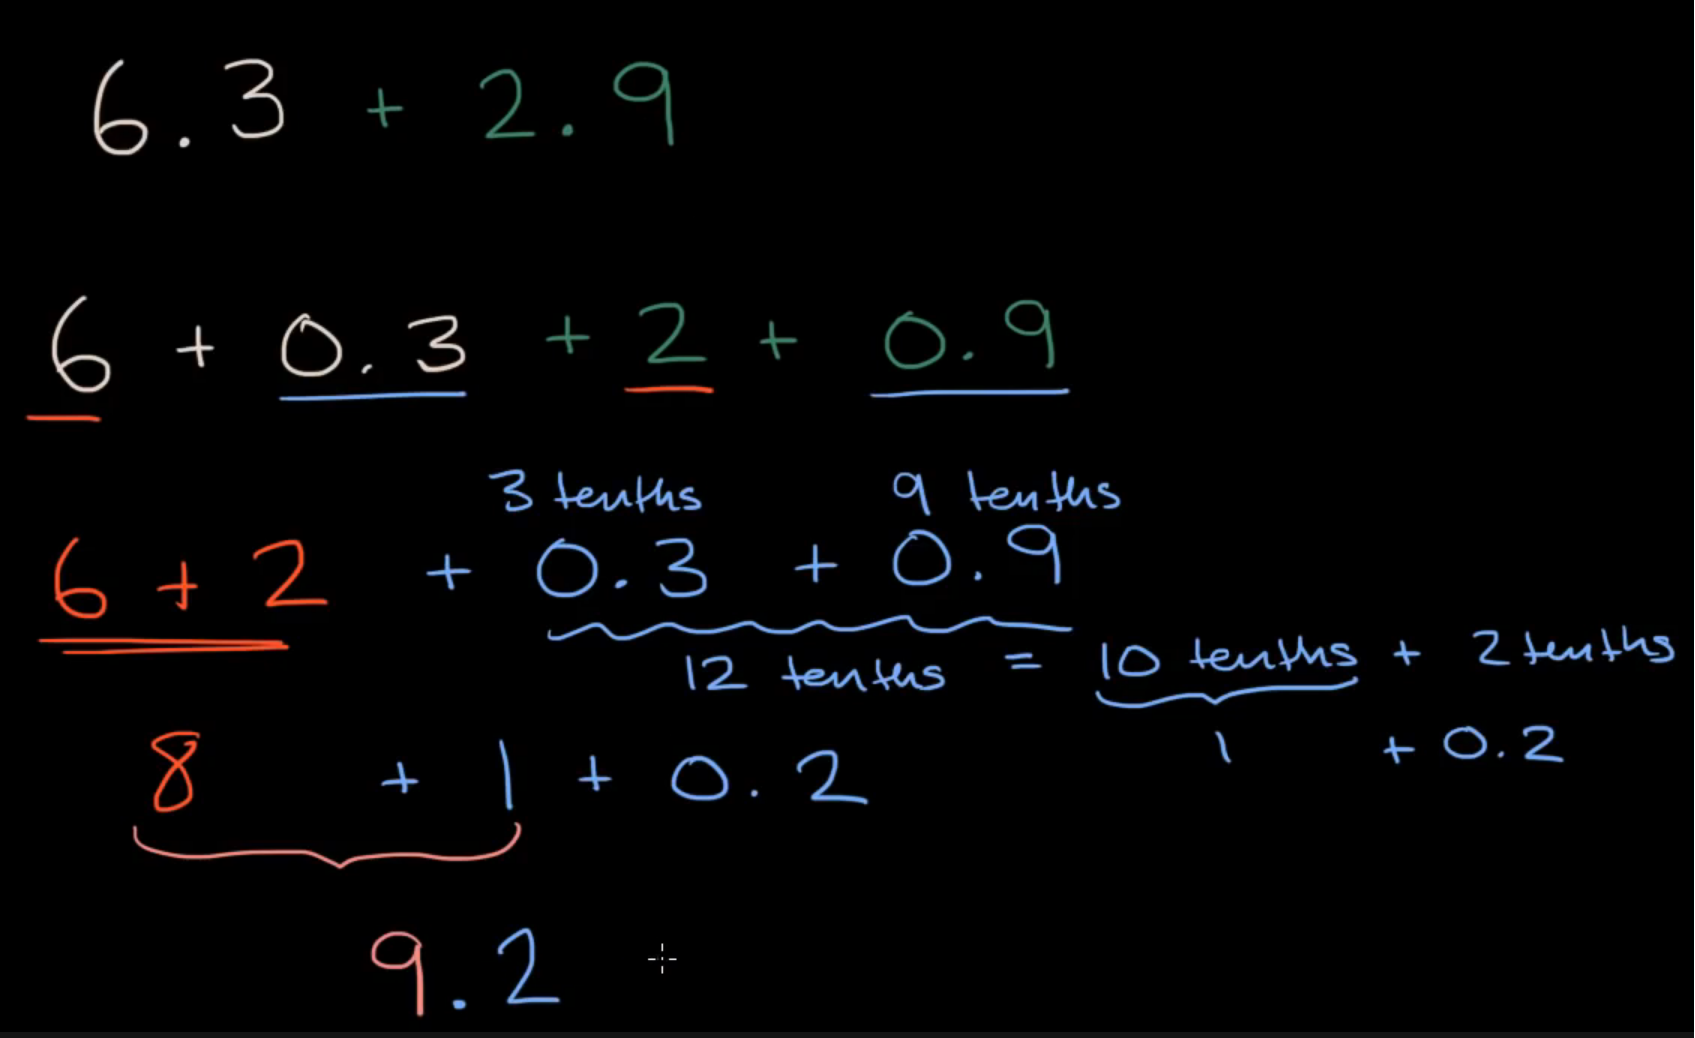 6.3 + 2.9
6 + 0.3 + 2 + 0.9
3 tenths 9 tenths
6 + 2 + 0.3 + 0.9
12 tenths = 10 tenths + 2 tenths
8 + 1 + 0.2 1 + 0.2
9.2